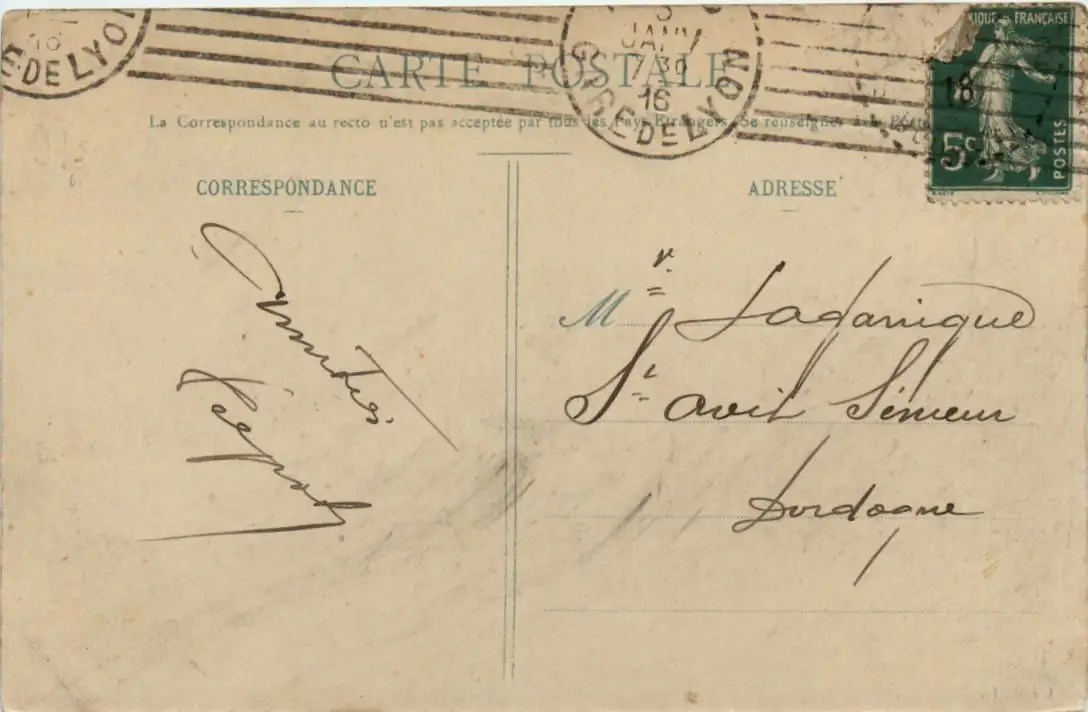 CARTE POSTALE
La Correspondance au recto n'est pas acceptée par tous les Pays Etrangers. Se renseigner à la Poste
GARE DE LYON
JANV
7 30
16
E DE LYON
16
18
IQUE FRANÇAISE
5c
POSTES
CORRESPONDANCE
Amitiés
ADRESSE
Mr Ladarnique
St avit Sénieur
Dordogne